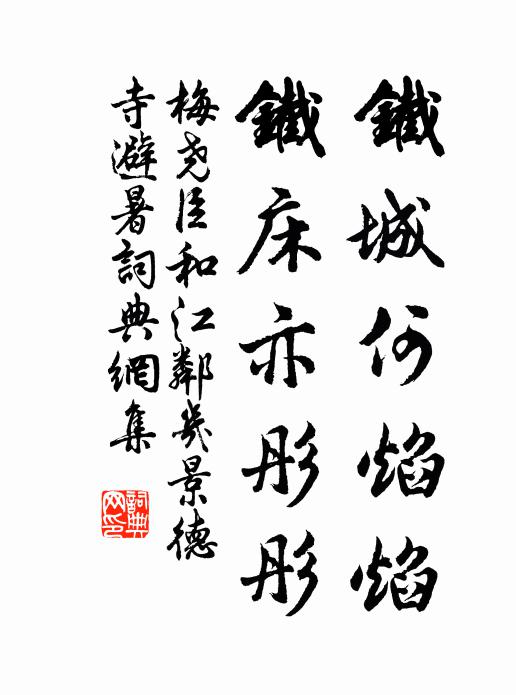 鐵城何焰焰
鐵床亦彤彤
梅尧臣和江鄰幾景德
寺避暑詞典網集
詞典网印